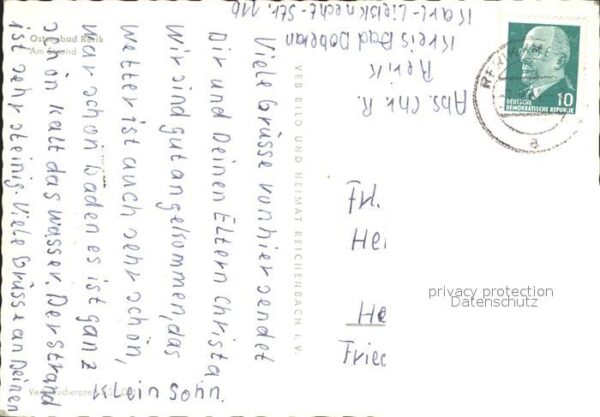 Ostseebad Rerik
Am Strand
Viele Grüsse von hier sendet
Dir und Deinen Eltern Christa
Wir sind gut angekommen, das
Wetter ist auch sehr schön,
war schon baden es ist ganz
schön kalt das Wasser. Der Strand
ist sehr steinig. Viele Grüsse an Deinen
Abs. Chr. R.
Rerik
Kreis Bad Doberan
Karl-Liebknecht-Str. 11b
VEB BILD UND HEIMAT REICHENBACH I. V.
DEUTSCHE
DEMOKRATISCHE REPUBLIK
10
a
Frl.
He
privacy protection
Datenschutz
He
Fried